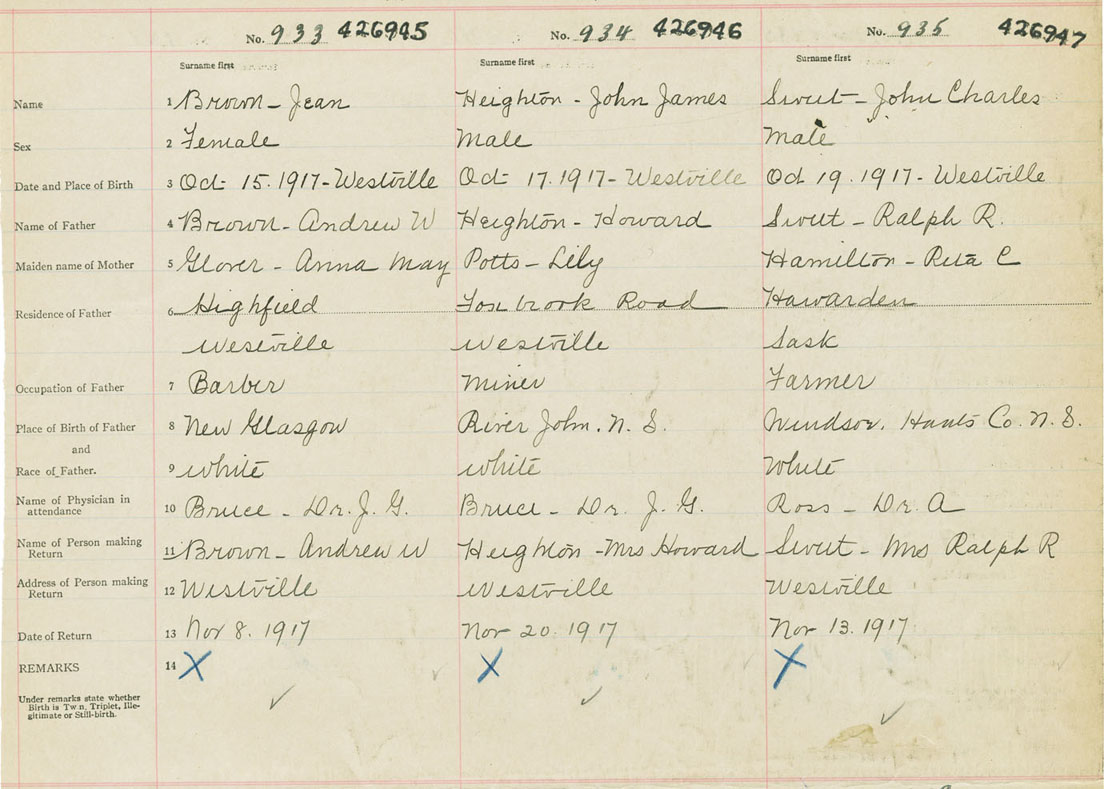 No. 933 426945 No. 934 426946 No. 935 426947
Surname first Surname first Surname first
Name 1 Brown - Jean Heighton - John James Sweet - John Charles
Sex 2 Female Male Male
Date and Place of Birth 3 Oct 15. 1917 - Westville Oct 17. 1917 - Westville Oct 19. 1917 - Westville
Name of Father 4 Brown - Andrew W Heighton - Howard Sweet - Ralph R.
Maiden name of Mother 5 Glover - Anna May Potts - Lily Hamilton - Reta C
Residence of Father 6 Highfield Foxbrook Road Hawarden
Westville Westville Sask
Occupation of Father 7 Barber Miner Farmer
Place of Birth of Father 8 New Glasgow River John. N. S. Windsor. Hants Co. N. S.
and
Race of Father. 9 White White White
Name of Physician in attendance 10 Bruce - Dr. J. G. Bruce - Dr. J. G. Ross - Dr A
Name of Person making Return 11 Brown - Andrew W Heighton - Mrs Howard Sweet - Mrs Ralph R
Address of Person making Return 12 Westville Westville Westville
Date of Return 13 Nov 8. 1917 Nov 20. 1917 Nov 13. 1917
REMARKS 14 X X X
Under remarks state whether
Birth is Twn, Triplet, Ille-
gitimate or Still-birth.